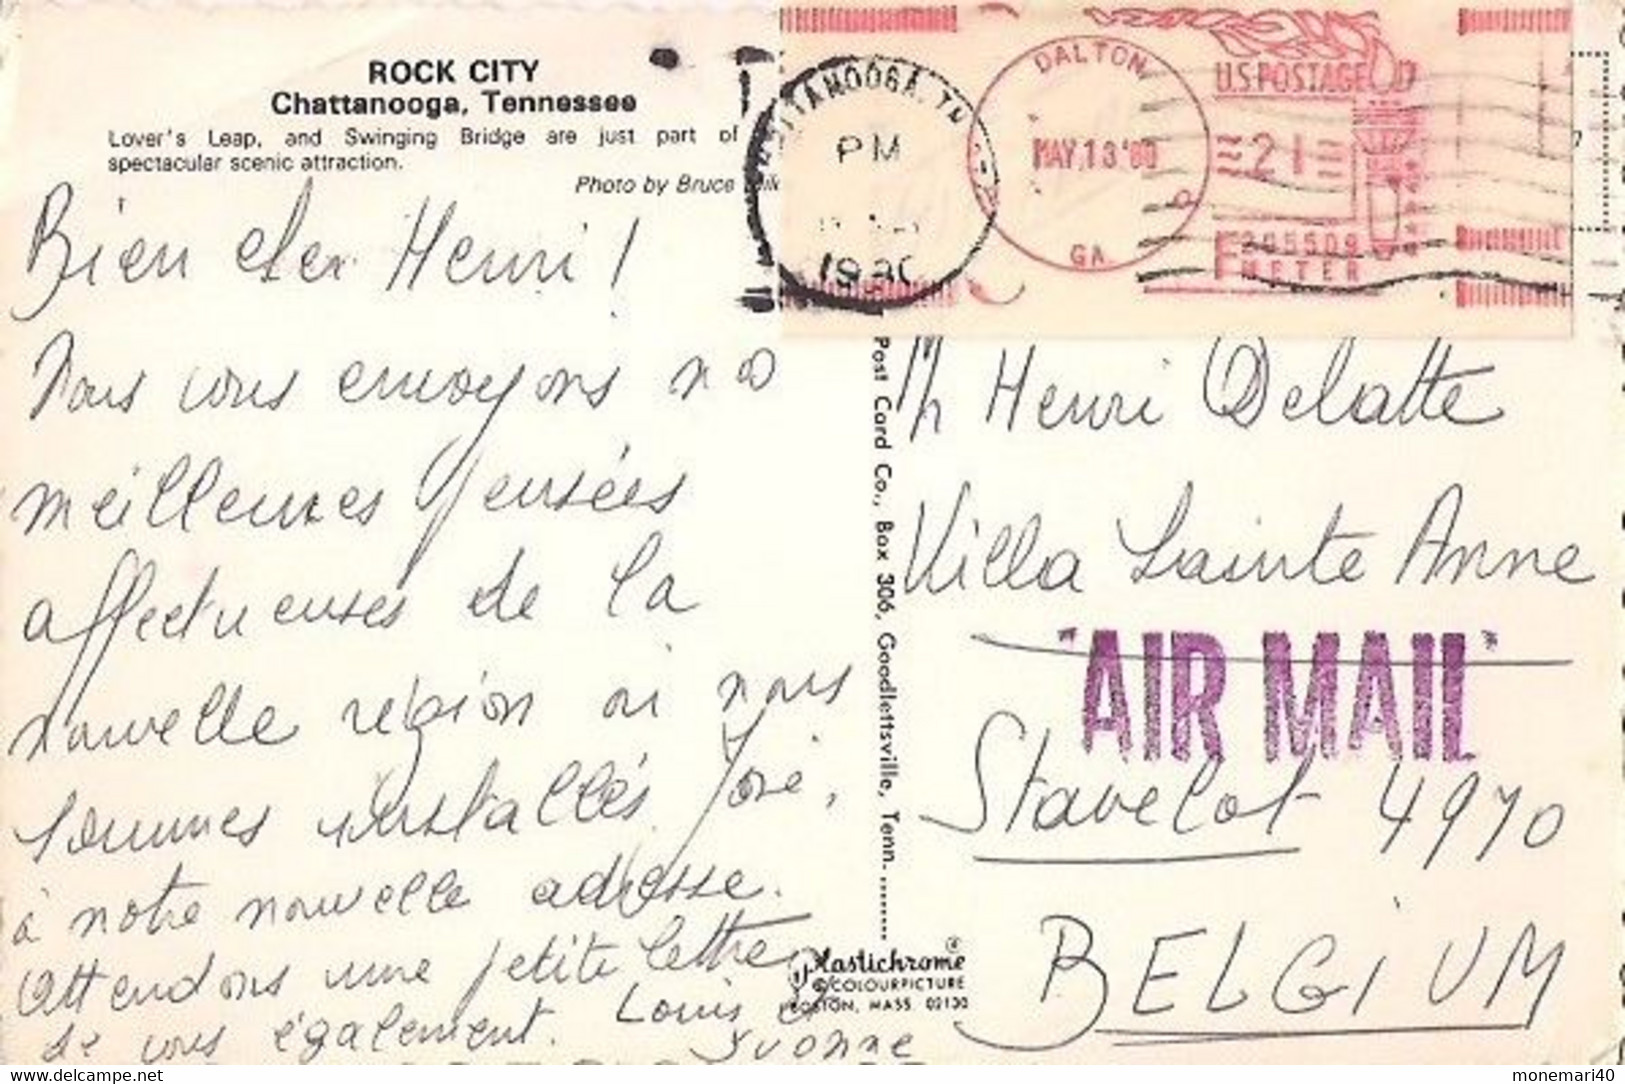 ROCK CITY
Chattanooga, Tennessee
Lover's Leap, and Swinging Bridge are just part of
spectacular scenic attraction.
Photo by Bruce
Bien cher Henri !
Nous vous envoyons nos
meilleures pensées
affectueuses de la
nouvelle région où nous
sommes installés José,
à notre nouvelle adresse.
Attendons une petite lettre
de vous également. Louis &
Yvonne
Post Card Co., Box 306, Goodlettsville, Tenn.
Plastichrome ®
© COLOURPICTURE
BOSTON, MASS. 02130
PM
1980
DALTON
MAY.13'80
GA
U.S.POSTAGE
21
METER
Mr Henri Delatte
Villa Sainte Anne
"AIR MAIL"
Stavelot 4970
BELGIUM
www.delcampe.net
monemari40